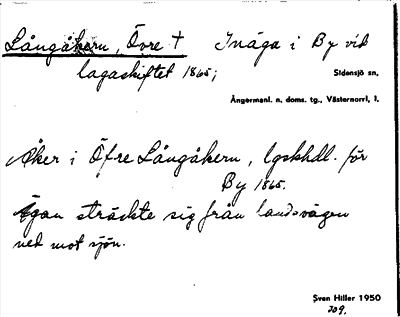 Långåkern, Övre † Inäga i By vid
lagaskiftet 1865;
Sidensjö sn,
Ångermanl. n. doms. tg., Västernorrl, l.
Åker i Öfre Långåkern, lgskhdl. för
By 1865.
Ägan sträckte sig från landsvägen
ned mot sjön.
Sven Hiller 1950
209.